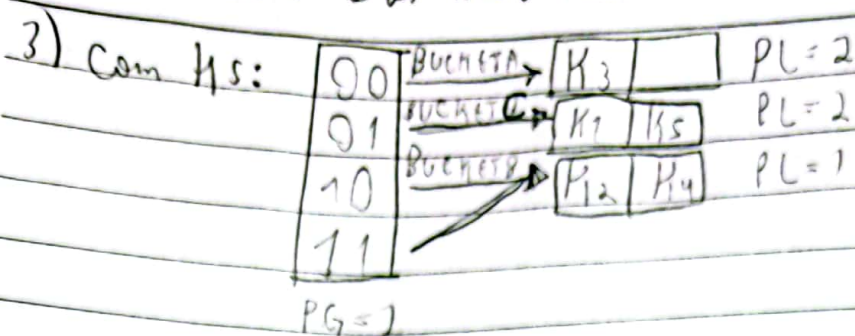 3) Com K5: 00 BUCKET A K3 PL = 2
01 BUCKET C K1 K5 PL = 2
10 BUCKET B K2 K4 PL = 1
11
PG = 2